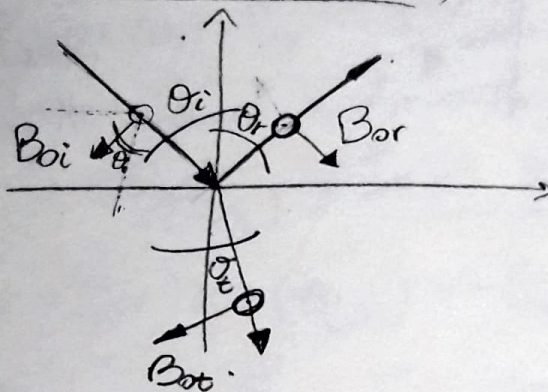 θi
θr
Boi
θi
Bor
θt
Bot